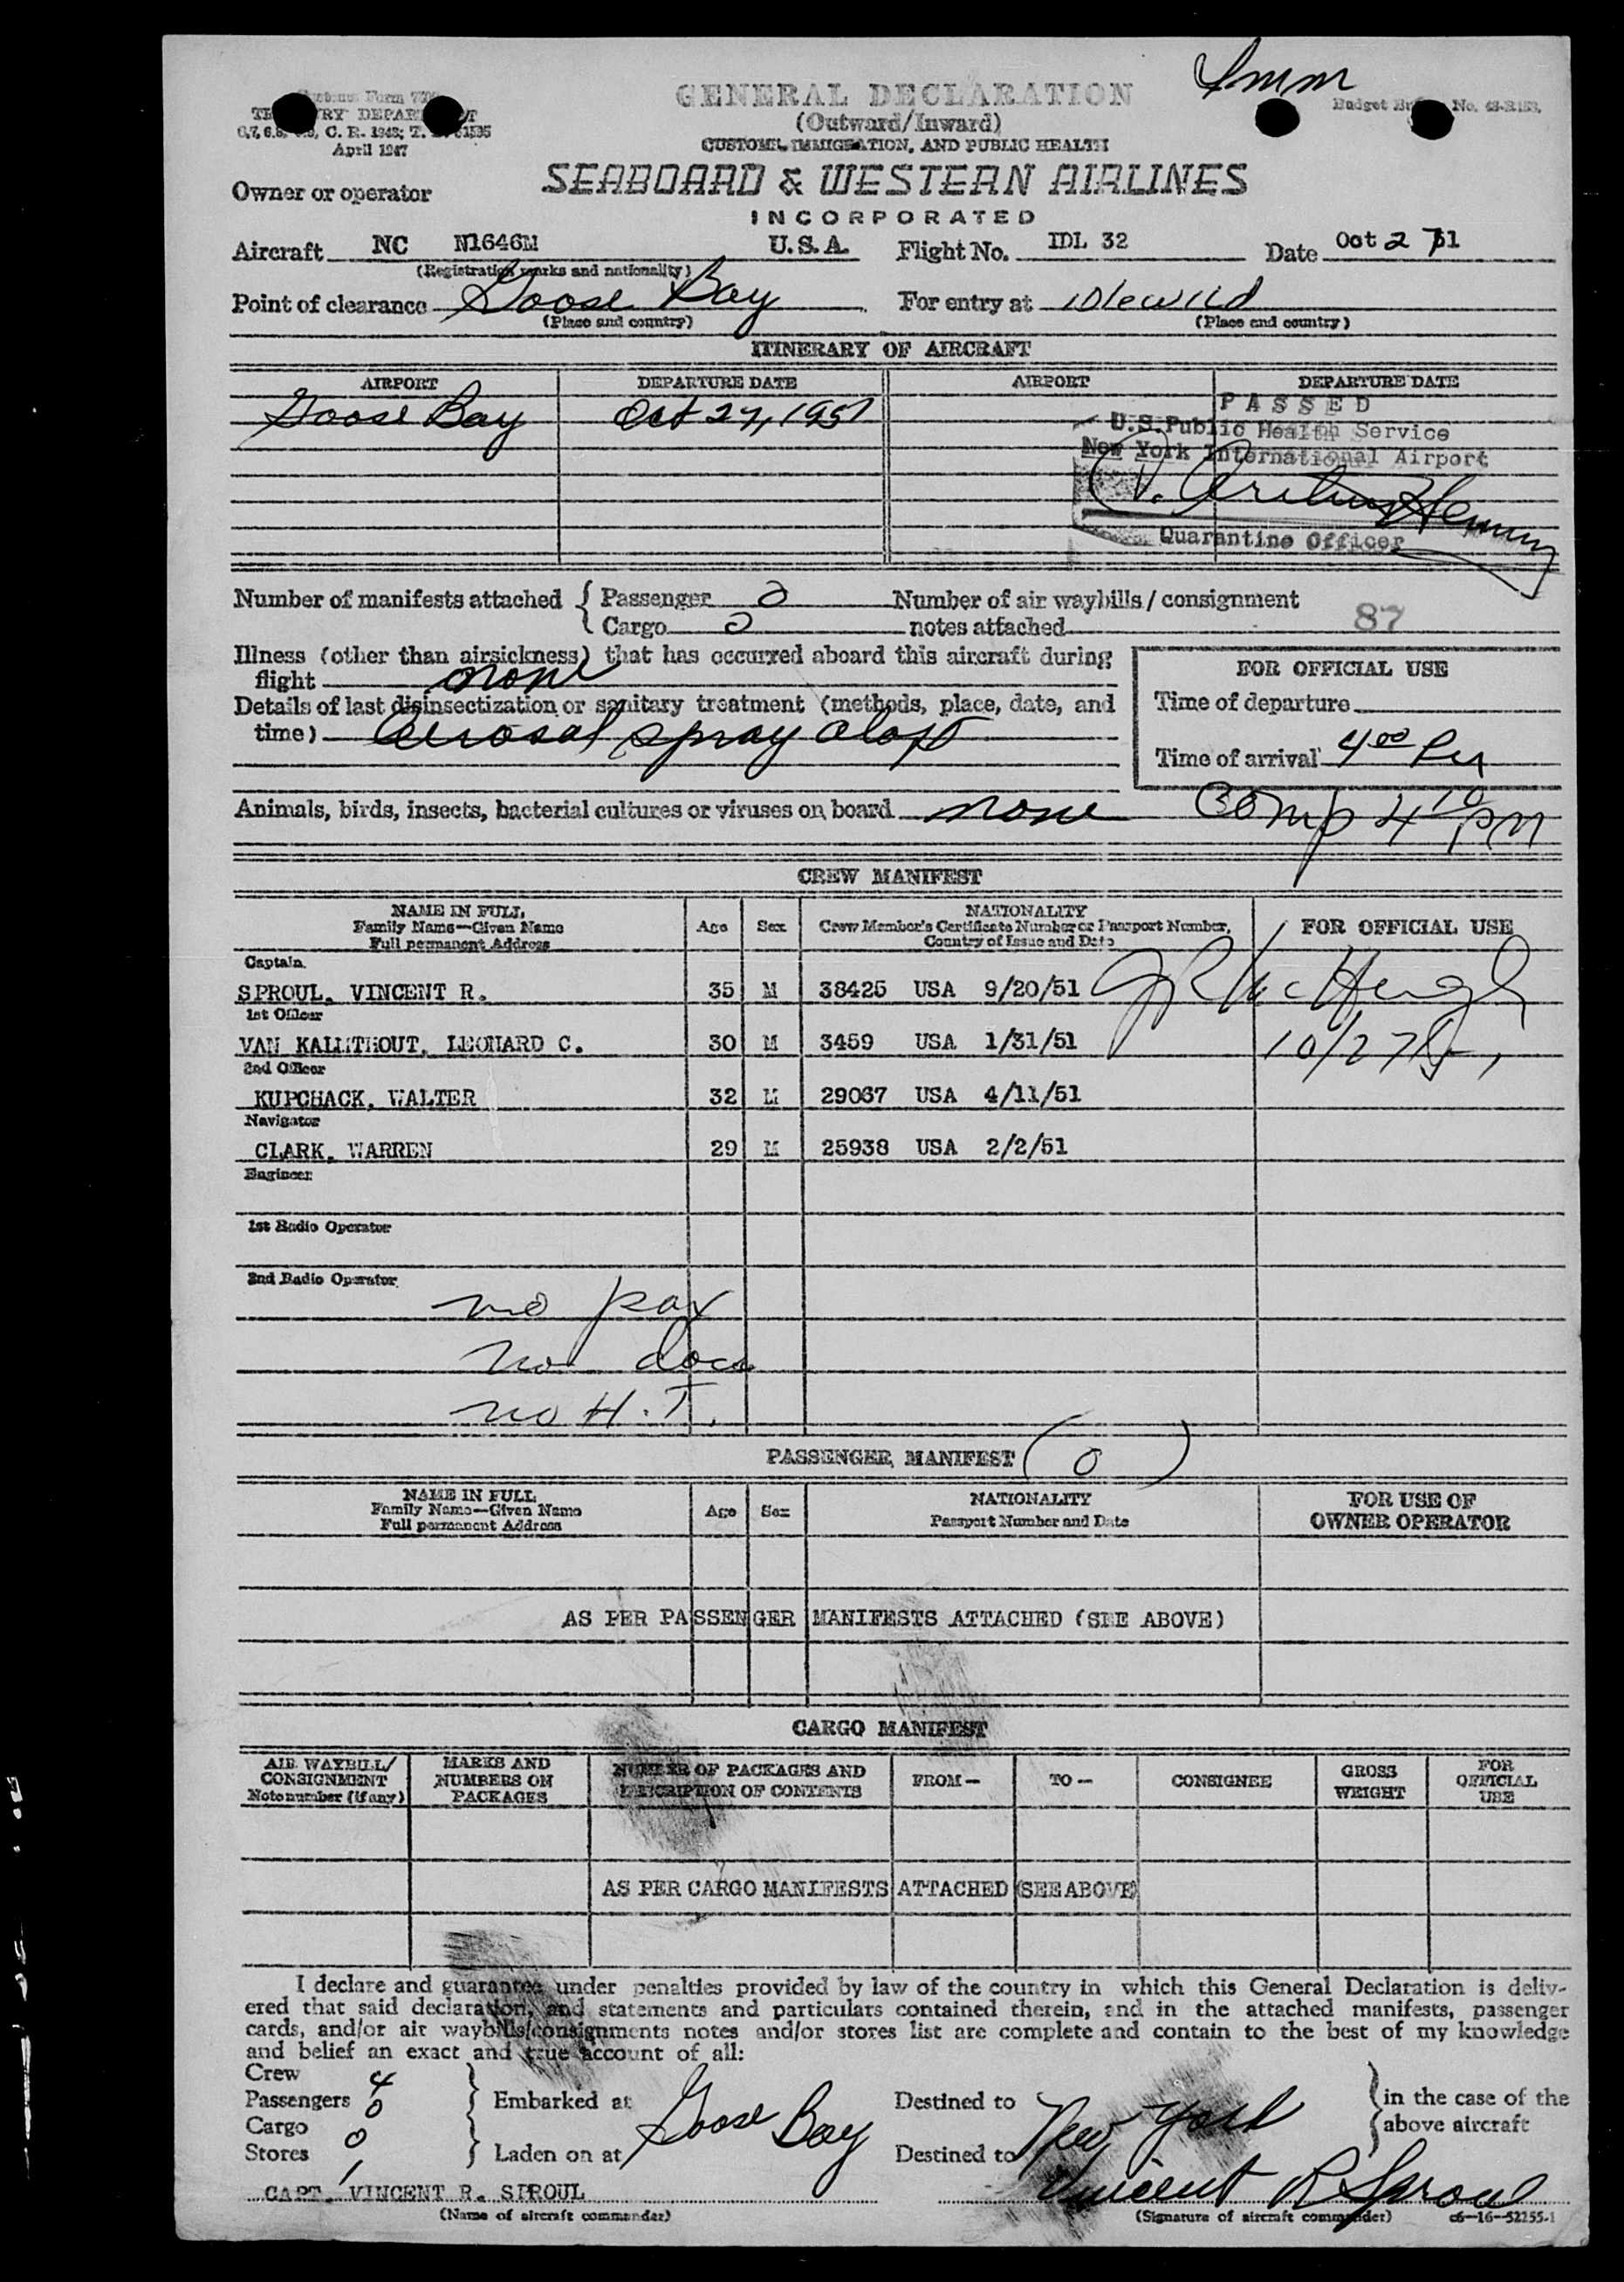 Imm
Customs Form
GENERAL DECLARATION
(Outward/Inward)
CUSTOMS, IMMIGRATION, AND PUBLIC HEALTH
April 1947
SEABOARD & WESTERN AIRLINES
INCORPORATED
Owner or operator
Aircraft NC N1646M U.S.A. Flight No. IDL 32 Date Oct 27 51
(Registration marks and nationality)
Point of clearance Goose Bay For entry at Idlewild
(Place and country) (Place and country)
ITINERARY OF AIRCRAFT
AIRPORT DEPARTURE DATE AIRPORT DEPARTURE DATE
Goose Bay Oct 27, 1951
PASSED
U.S. Public Health Service
New York International Airport
Quarantine Officer
Number of manifests attached { Passenger 0 Number of air waybills / consignment
Cargo 0 notes attached 87
Illness (other than airsickness) that has occurred aboard this aircraft during
flight none
Details of last disinsectization or sanitary treatment (methods, place, date, and
time) Aerosal spray aloft
FOR OFFICIAL USE
Time of departure
Time of arrival 4 00 PM
Animals, birds, insects, bacterial cultures or viruses on board none Comp 4 10 pm
CREW MANIFEST
NAME IN FULL
Family Name—Given Name
Full permanent Address
Age Sex
NATIONALITY
Crew Member's Certificate Number or Passport Number,
Country of Issue and Date
FOR OFFICIAL USE
Captain
SPROUL, VINCENT R. 35 M 38425 USA 9/20/51
1st Officer
VAN KALKTHOUT, LEONARD C. 30 M 3459 USA 1/31/51 10/27/51
2nd Officer
KUPCHACK, WALTER 32 M 29067 USA 4/11/51
Navigator
CLARK, WARREN 29 M 25938 USA 2/2/51
Engineer
1st Radio Operator
2nd Radio Operator
no pax
no docs
no H.T.
PASSENGER MANIFEST (0)
NAME IN FULL
Family Name—Given Name
Full permanent Address
Age Sex
NATIONALITY
Passport Number and Date
FOR USE OF
OWNER OPERATOR
AS PER PASSENGER MANIFESTS ATTACHED (SEE ABOVE)
CARGO MANIFEST
AIR WAYBILL/
CONSIGNMENT
Note number (if any)
MARKS AND
NUMBERS ON
PACKAGES
NUMBER OF PACKAGES AND
DESCRIPTION OF CONTENTS
FROM—
TO—
CONSIGNEE
GROSS
WEIGHT
FOR
OFFICIAL
USE
AS PER CARGO MANIFESTS ATTACHED (SEE ABOVE)
I declare and guarantee under penalties provided by law of the country in which this General Declaration is deliv-
ered that said declaration, and statements and particulars contained therein, and in the attached manifests, passenger
cards, and/or air waybills/consignments notes and/or stores list are complete and contain to the best of my knowledge
and belief an exact and true account of all:
Crew 4
Passengers 0
Cargo 0
Stores 1
Embarked at
Laden on at
Goose Bay
Destined to
Destined to
New York
in the case of the
above aircraft
CAPT. VINCENT R. SPROUL Vincent R Sproul
(Name of aircraft commander) (Signature of aircraft commander) c6—16—52255-1